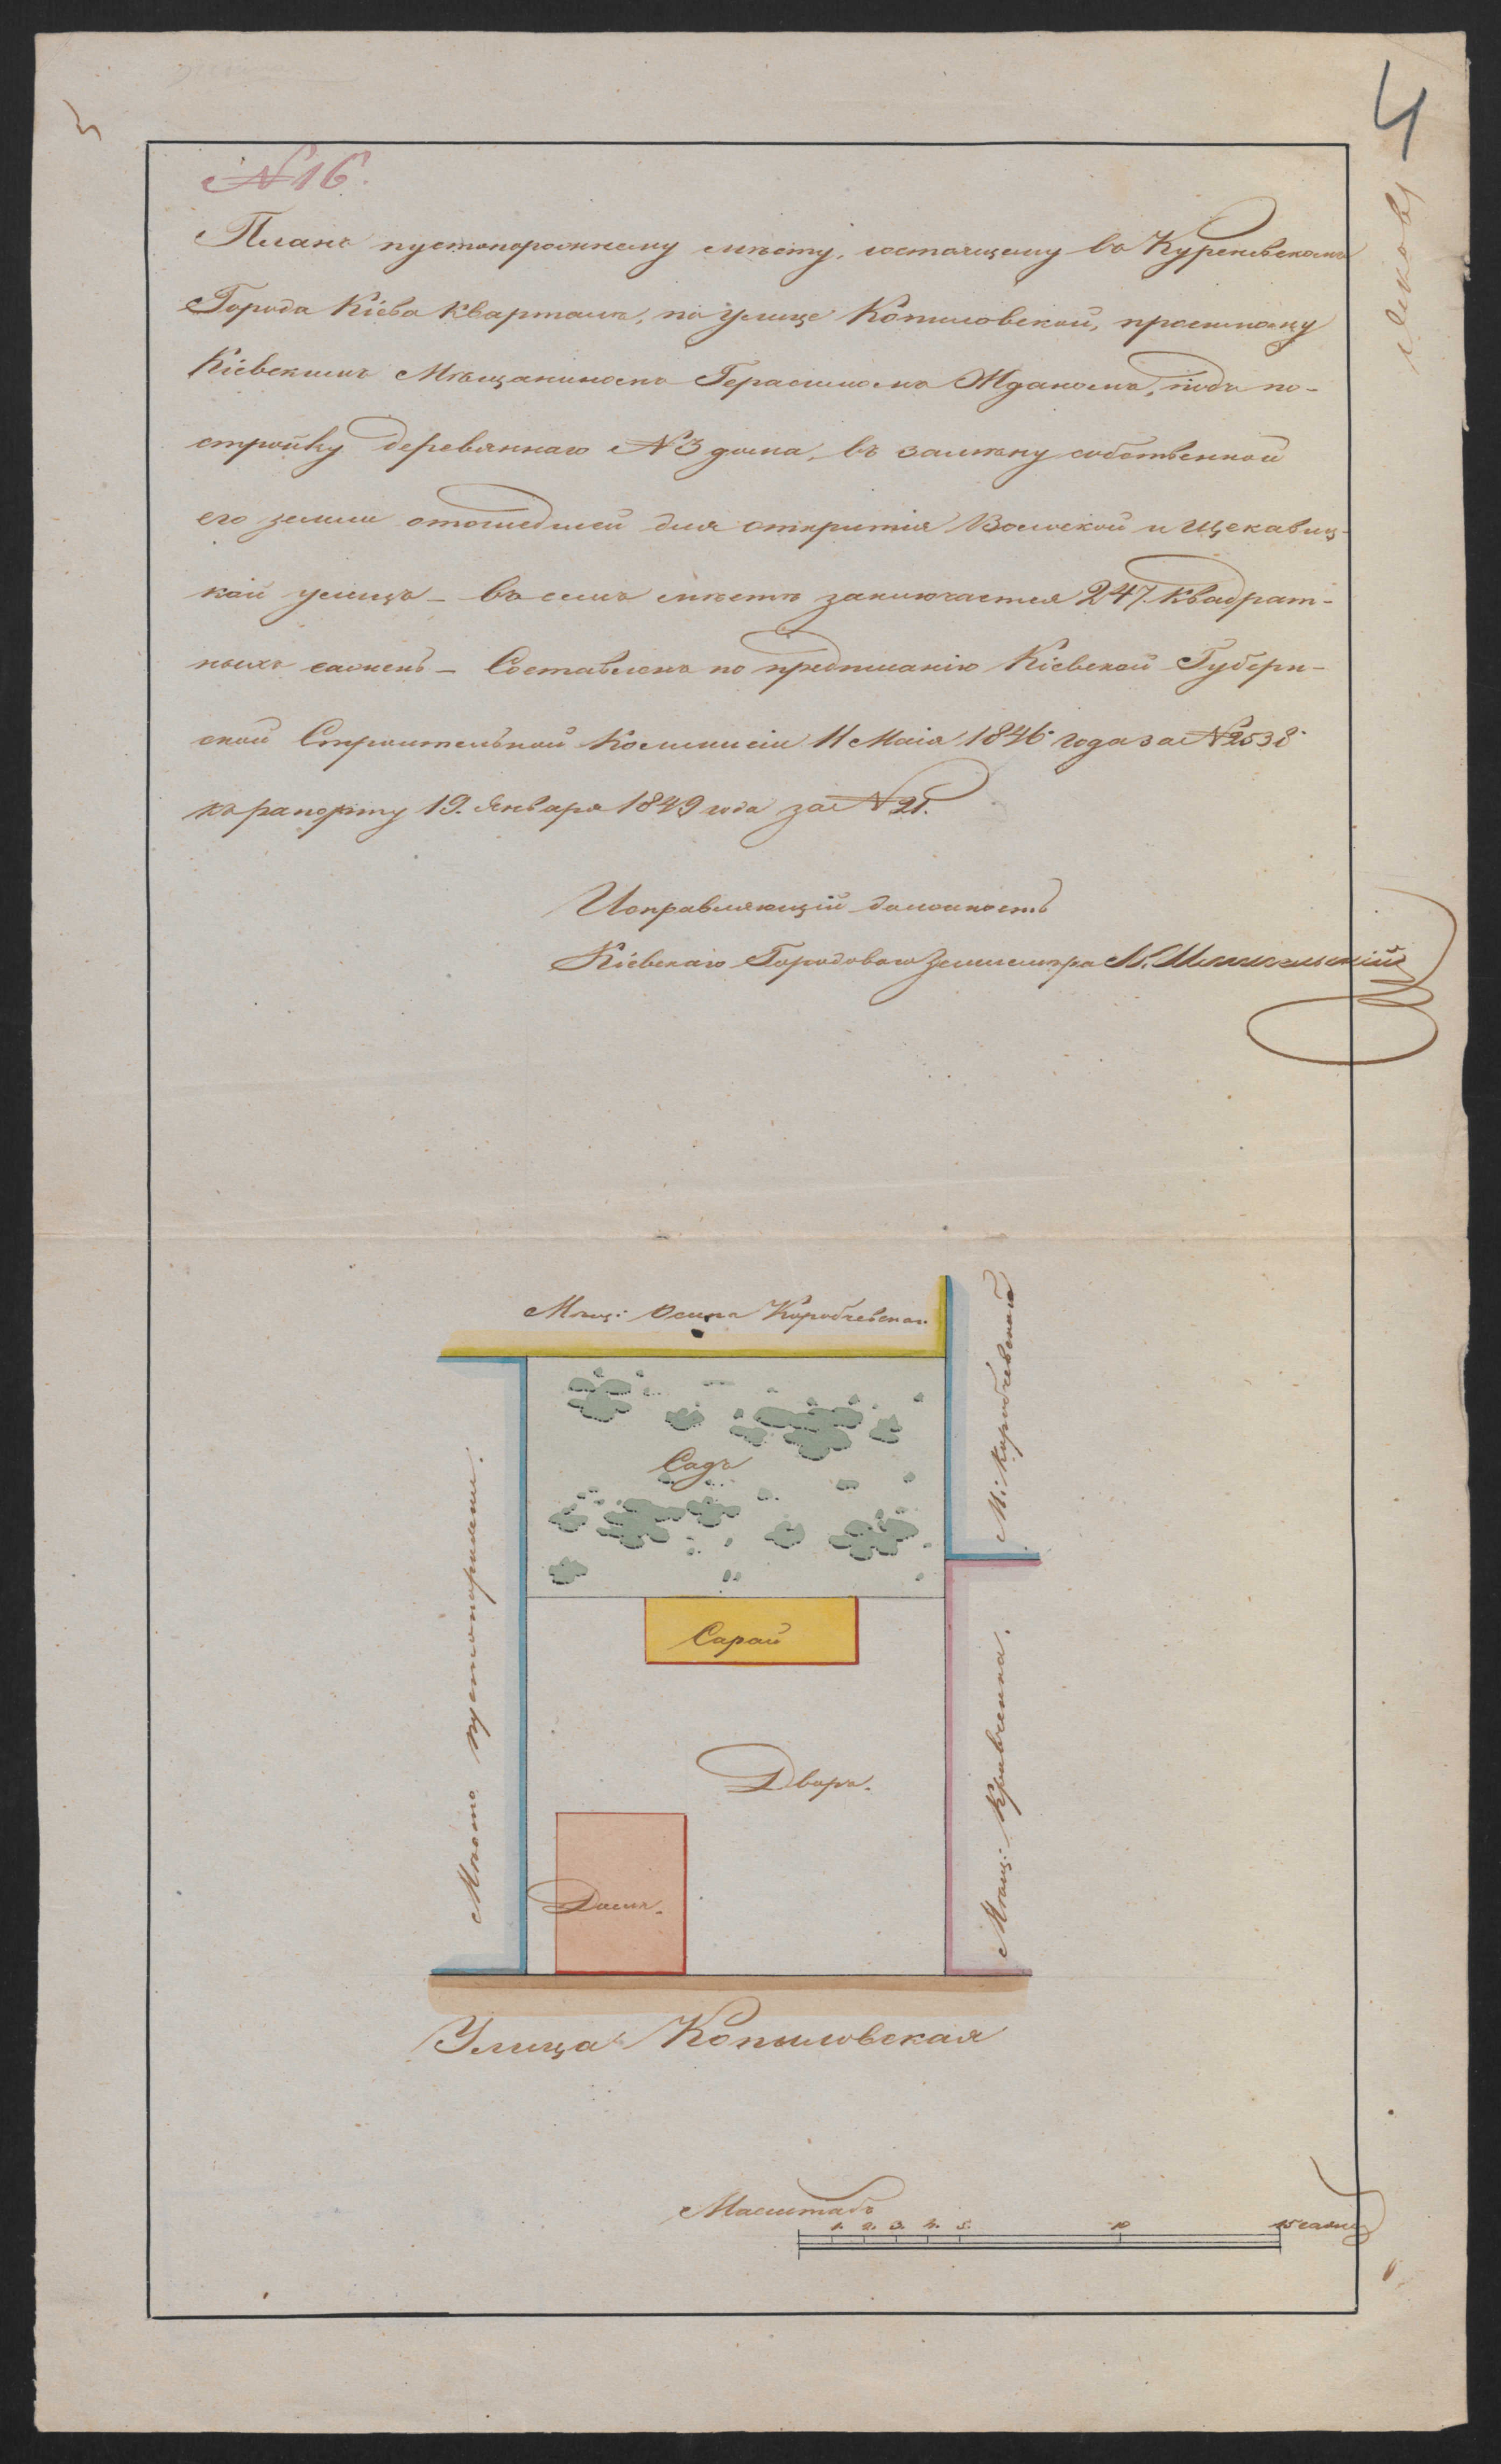 4
№ 16.
Планъ пустопорожнему мѣсту, состоящему въ Куреневскомъ
Города Кіева кварталѣ, по улицѣ Копыловской, просимому
Кіевскимъ Мѣщаниномъ Герасимомъ Жданомъ, подъ по-
стройку деревяннаго №3 дома, въ замѣну собственной
его земли отошедшей для открытія Волоской и Щекавиц-
кой улицъ – въ семъ мѣстѣ заключается 247 квадрат-
ныхъ саженъ – Составленъ по предписанію Кіевской Губерн-
ской Строительной Коммисіи 11 Маія 1846 года за № 2538
къ рапорту 19. Января 1849 года за № 21.
Исправляющій должность
Кіевскаго Городоваго Землемѣра
Мѣщ: Осипа Коробчевскаго
М: Коробчевскаго
Садъ
Сарай
Мѣсто пустопорожнее.
Дворъ.
Мѣщ: Кравченка.
Домъ.
Улица Копыловская
Масштабъ
1. 2. 3. 4. 5. 10 15 саженъ